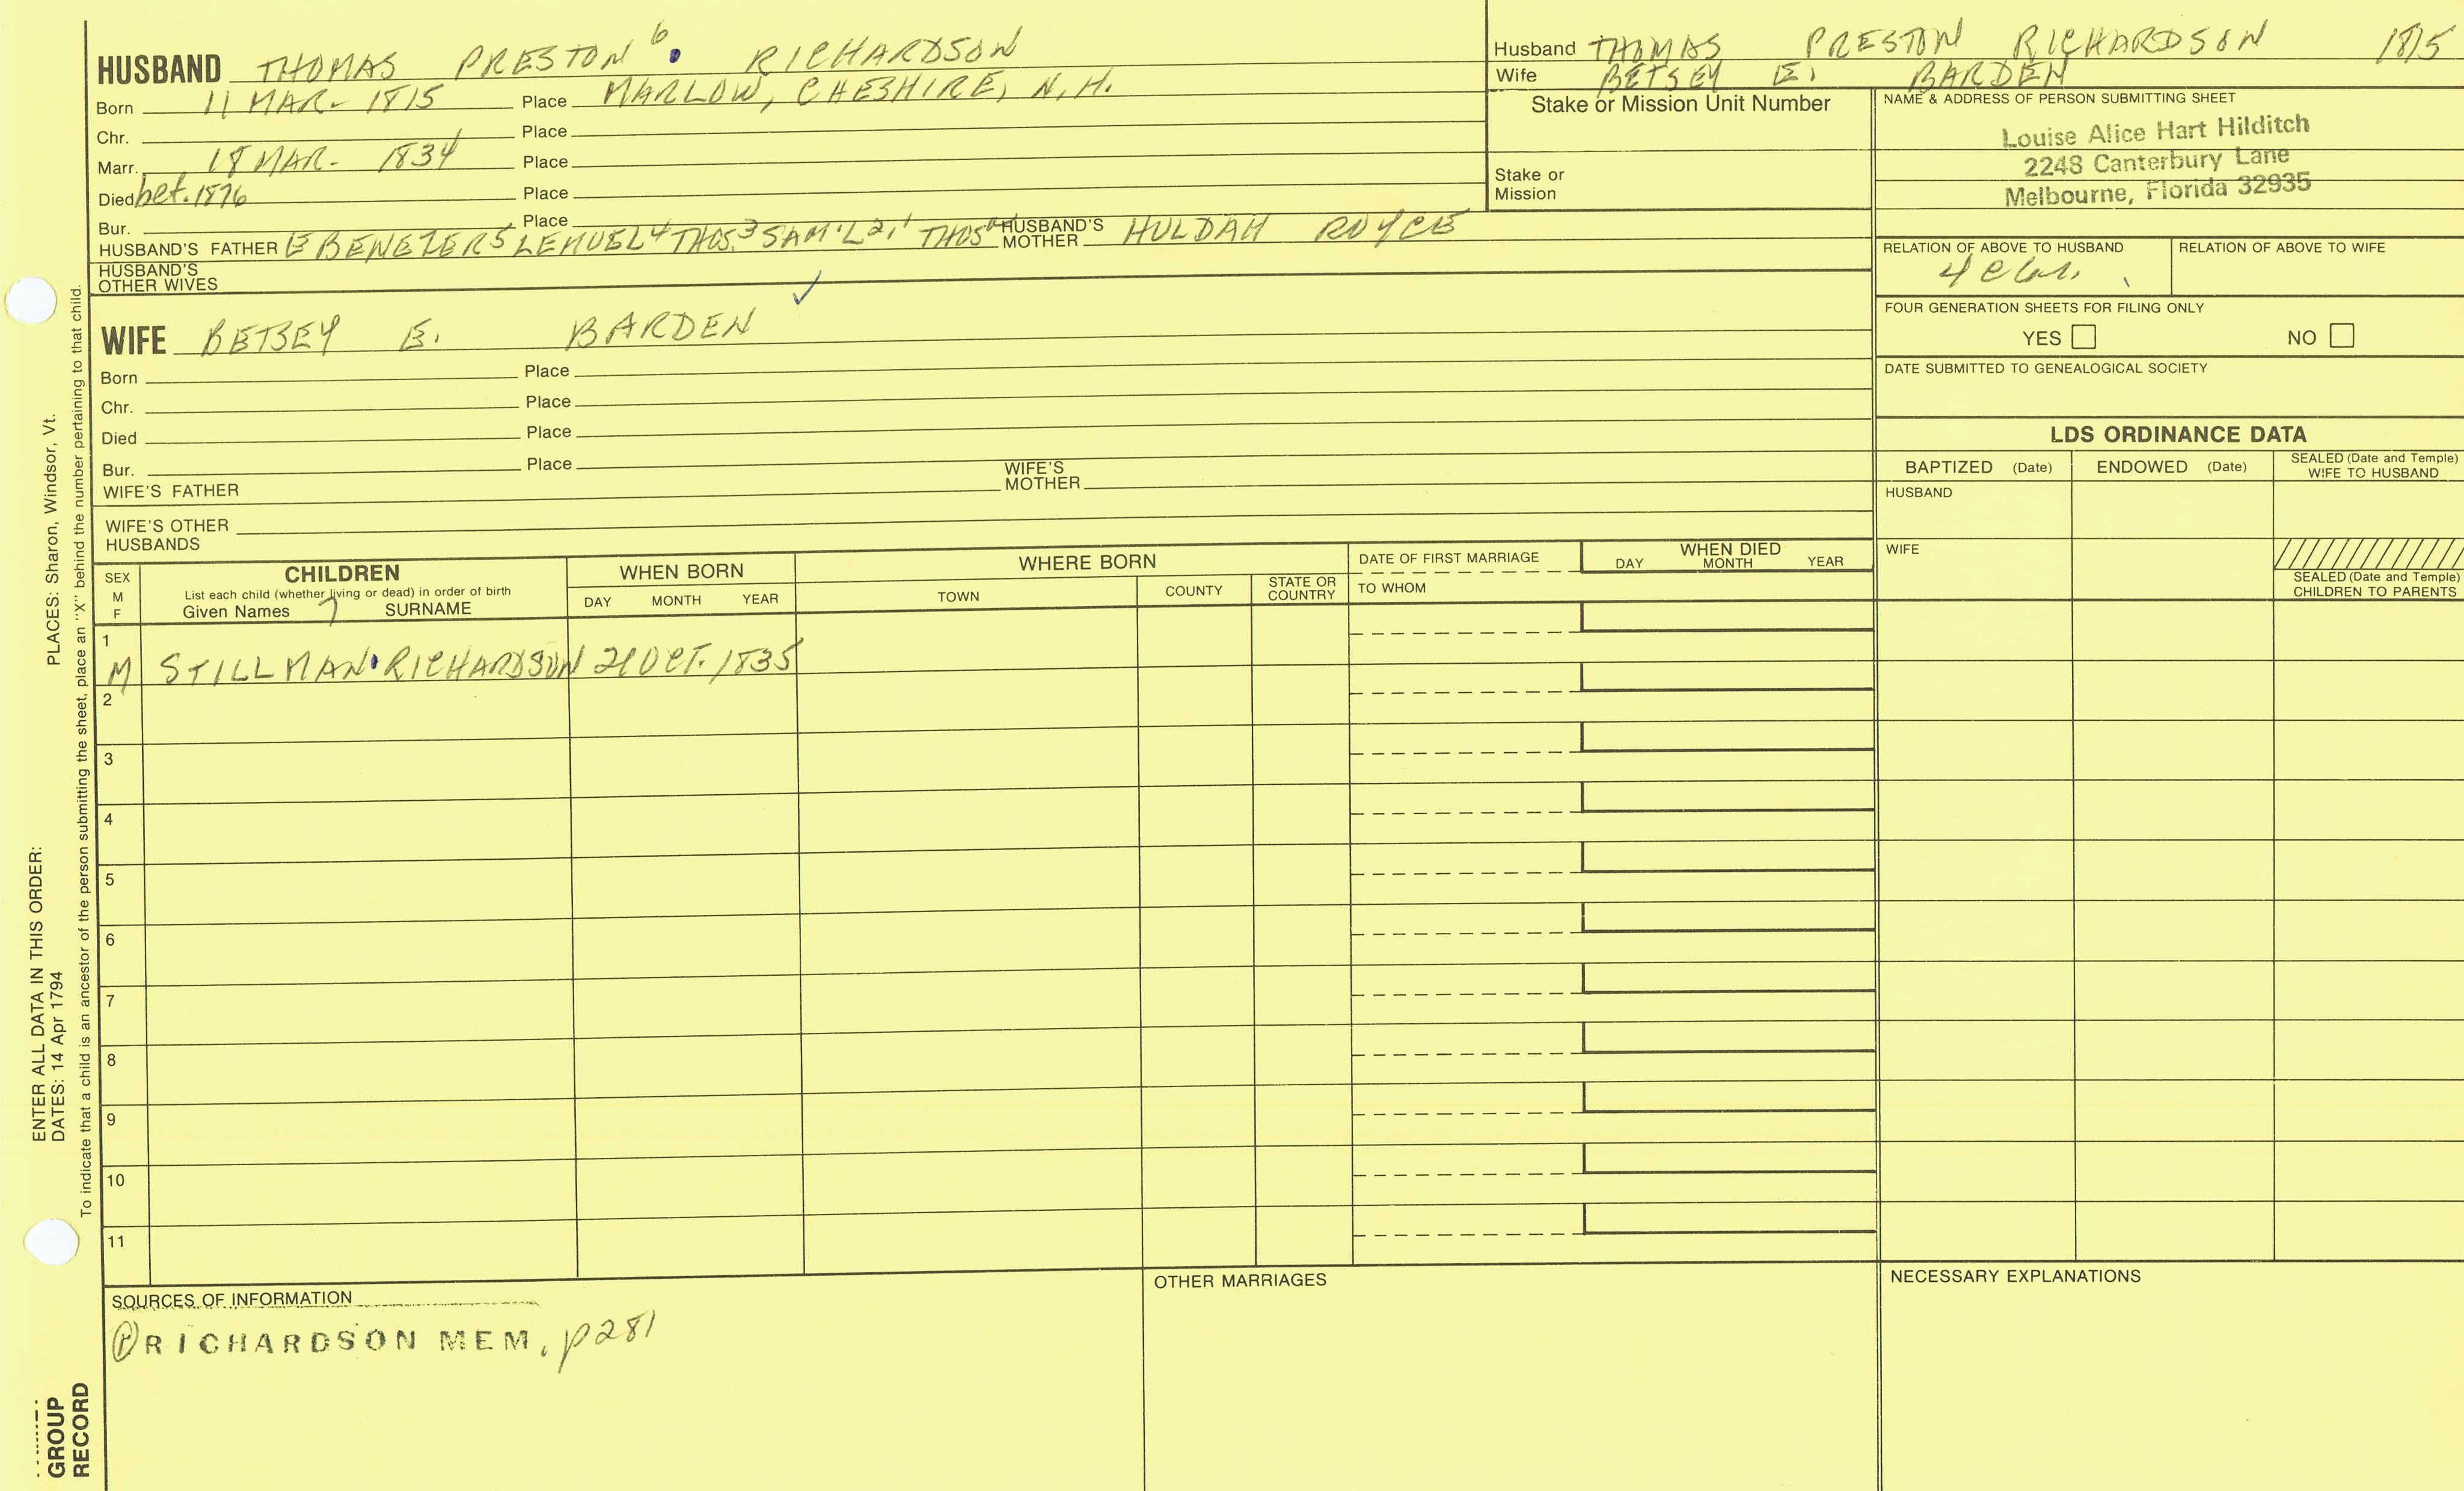 HUSBAND THOMAS PRESTON 6 RICHARDSON
Born 11 MAR- 1815 Place MARLOW, CHESHIRE, N.H.
Chr. Place
Marr. 18 MAR- 1834 Place
Died bet. 1876 Place
Bur. Place
HUSBAND'S FATHER EBENEZER5 LEMUEL4 THOS.3 SAM'L2,1 THOS HUSBAND'S MOTHER HULDAH ROYCE
HUSBAND'S OTHER WIVES
WIFE BETSEY E. BARDEN
Born Place
Chr. Place
Died Place
Bur. Place
WIFE'S FATHER WIFE'S MOTHER
WIFE'S OTHER HUSBANDS
Husband THOMAS PRESTON RICHARDSON 1815
Wife BETSEY E. BARDEN
Stake or Mission Unit Number
Stake or Mission
NAME & ADDRESS OF PERSON SUBMITTING SHEET
Louise Alice Hart Hilditch
2248 Canterbury Lane
Melbourne, Florida 32935
RELATION OF ABOVE TO HUSBAND RELATION OF ABOVE TO WIFE
FOUR GENERATION SHEETS FOR FILING ONLY
YES NO
DATE SUBMITTED TO GENEALOGICAL SOCIETY
LDS ORDINANCE DATA
BAPTIZED (Date) ENDOWED (Date) SEALED (Date and Temple) WIFE TO HUSBAND
HUSBAND
WIFE
SEALED (Date and Temple) CHILDREN TO PARENTS
SEX M F CHILDREN WHEN BORN WHERE BORN DATE OF FIRST MARRIAGE WHEN DIED
List each child (whether living or dead) in order of birth
Given Names 7 SURNAME DAY MONTH YEAR TOWN COUNTY STATE OR COUNTRY TO WHOM DAY MONTH YEAR
1
M STILLMAN RICHARDSON 21 OCT. 1835
2
3
4
5
6
7
8
9
10
11
SOURCES OF INFORMATION
RICHARDSON MEM, p281
OTHER MARRIAGES
NECESSARY EXPLANATIONS
ENTER ALL DATA IN THIS ORDER:
DATES: 14 Apr 1794 PLACES: Sharon, Windsor, Vt.
To indicate that a child is an ancestor of the person submitting the sheet, place an "X" behind the number pertaining to that child.
GROUP
RECORD